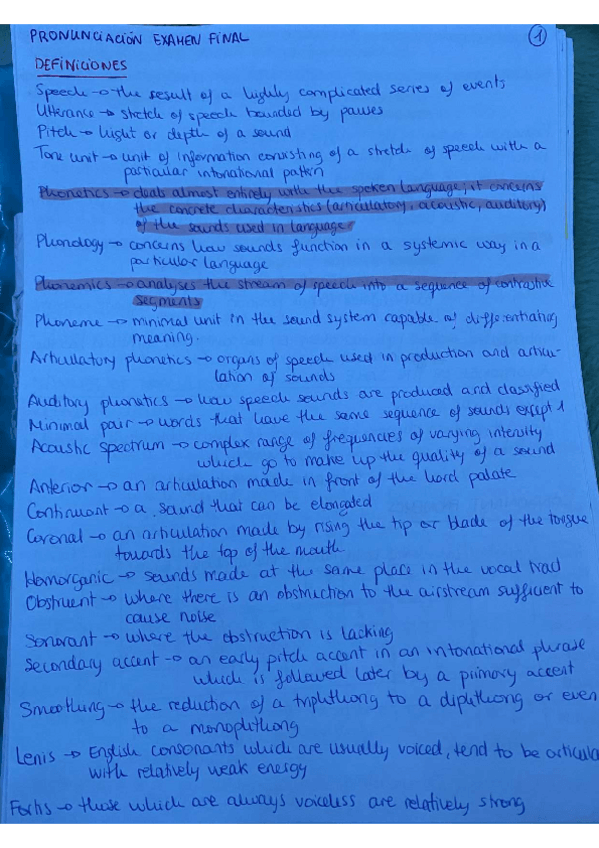 PRONUNCIACIÓN EXAMEN FINAL
1
DEFINICIONES
Speech → the result of a highly complicated series of events
Utterance → stretch of speech bounded by pauses
Pitch → hight or depth of a sound
Tone unit → unit of information consisting of a stretch of speech with a
particular intonational pattern
Phonetics → deals almost entirely with the spoken language; it concerns
the concrete characteristics (articulatory, acoustic, auditory)
of the sounds used in language
Phonology → concerns how sounds function in a systemic way in a
particular language
Phonemics → analyses the stream of speech into a sequence of contrastive
segments
Phoneme → minimal unit in the sound system capable of differentiating
meaning.
Articulatory phonetics → organs of speech used in production and articu-
lation of sounds
Auditory phonetics → how speech sounds are produced and classified
Minimal pair → words that have the same sequence of sounds except 1
Acoustic spectrum → complex range of frequencies of varying intensity
which go to make up the quality of a sound
Anterior → an articulation made in front of the hard palate
Continuant → a sound that can be elongated
Coronal → an articulation made by rising the tip or blade of the tongue
towards the top of the mouth
Homorganic → sounds made at the same place in the vocal tract
Obstruent → where there is an obstruction to the airstream sufficient to
cause noise
Sonorant → where the obstruction is lacking
Secondary accent → an early pitch accent in an intonational phrase
which is followed later by a primary accent
Smoothing → the reduction of a triphthong to a diphthong or even
to a monophthong
Lenis → English consonants which are usually voiced, tend to be articula
with relatively weak energy
Fortis → those which are always voiceless are relatively strong